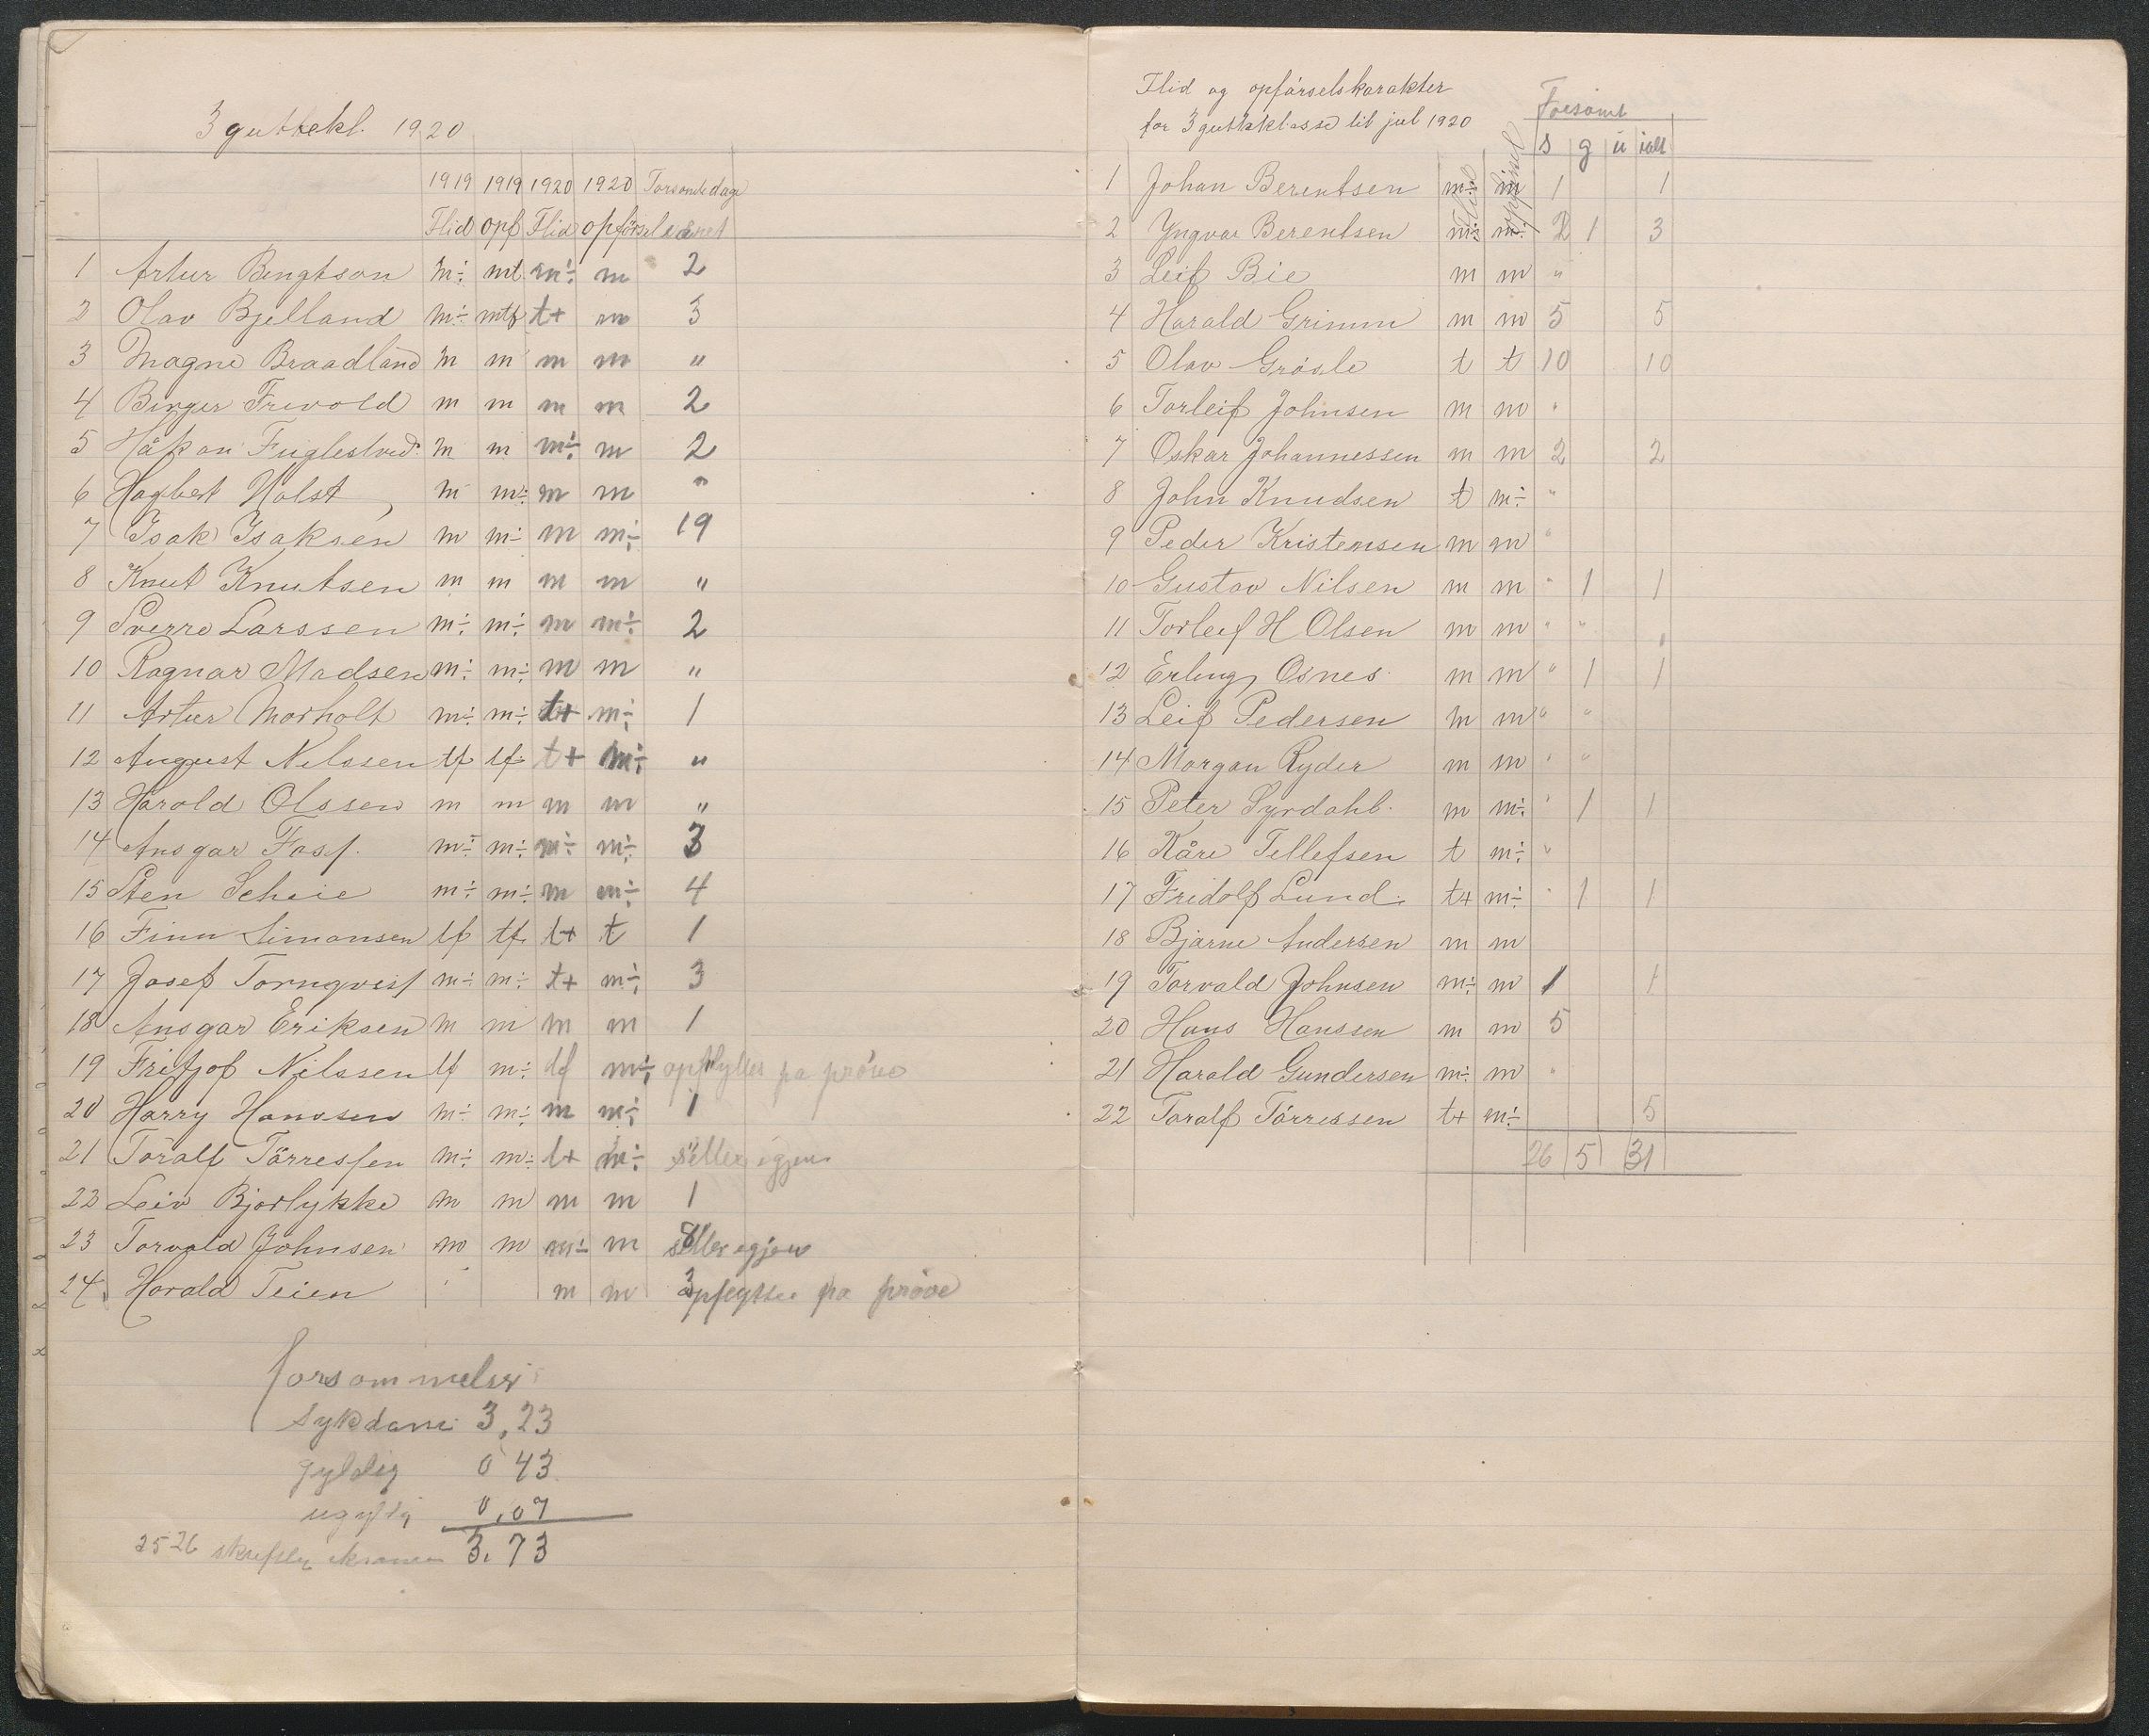 3 guttekl. 1920
1919 1919 1920 1920 Forsömte dage
Flid opf Flid opförsel
1 Artur Bengtson m÷ mt m÷ m 2
2 Olav Bjelland m÷ mtf t+ m 3
3 Magne Braadland m m m m "
4 Birger Trevold m m m m 2
5 Håkon Fuglestved m m m÷ m 2
6 Hagbert Holst m m÷ m m "
7 Isak Isaksen m m÷ m m÷ 19
8 Knut Knutsen m m m m "
9 Sverre Larssen m÷ m÷ m m÷ 2
10 Ragnar Madsen m÷ m÷ m m "
11 Artur Morholt m÷ m÷ t+ m÷ 1
12 August Nilssen tf tf t+ m÷ "
13 Harald Olssen m m m m "
14 Ansgar Fosf. m÷ m÷ m÷ m÷ 3
15 Sten Scheie m÷ m÷ m m÷ 4
16 Finn Simonsen tf tf t+ t 1
17 Josef Tornqvist m÷ m÷ t+ m÷ 3
18 Ansgar Eriksen m m m m 1
19 Fritjof Nilssen tf m÷ tf m÷ opflyttes pa pröve
20 Harry Hanssen m÷ m÷ m m÷ 1
21 Toralf Törressen m÷ m÷ t+ m÷ sitter igjen
22 Leiv Bjorlykke m m m m 1
23 Torvald Johnsen m m m÷ m sitter igjen
24 Harald Teien m m 3 opflyttes pa pröve
forsömmelser
sykdom 3,23
gyldig 0 43
ugyldig 0,07
25 26 3,73
Flid og opförselskarakter
for 3 gutteklasse til jul 1920
Forsömt
Flid opförsel s g u ialt
1 Johan Berentsen m÷ m 1 1
2 Yngvar Berentsen m÷ m÷ 2 1 3
3 Leif Bie m m "
4 Harald Grimm m m 5 5
5 Olav Grösle t t 10 10
6 Torleif Johnsen m m "
7 Oskar Johannessen m m 2 2
8 John Knudsen t m÷ "
9 Peder Kristensen m m "
10 Gustav Nilsen m m " 1 1
11 Torleif H Olsen m m " " "
12 Erling Osnes m m " 1 1
13 Leif Pedersen m m " "
14 Morgan Ryder m m " "
15 Peter Syrdahl. m m÷ " 1 1
16 Kåre Tellefsen t m÷ "
17 Fridolf Lund. t+ m÷ " 1 1
18 Bjarne Andersen m m
19 Torvald Johnsen m÷ m 1 1
20 Hans Hanssen m m 5
21 Harald Gundersen m÷ m "
22 Toralf Törressen t+ m÷ 5
26 5 31